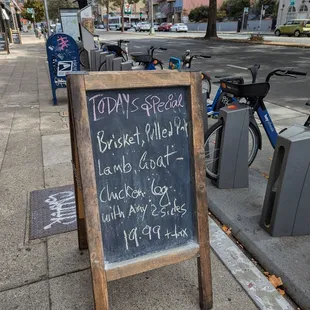 TODAYS Special
Brisket, Pulled Pork
Lamb, Goat -
Chicken Leg
with Any 2 Sides
19.99 + tax